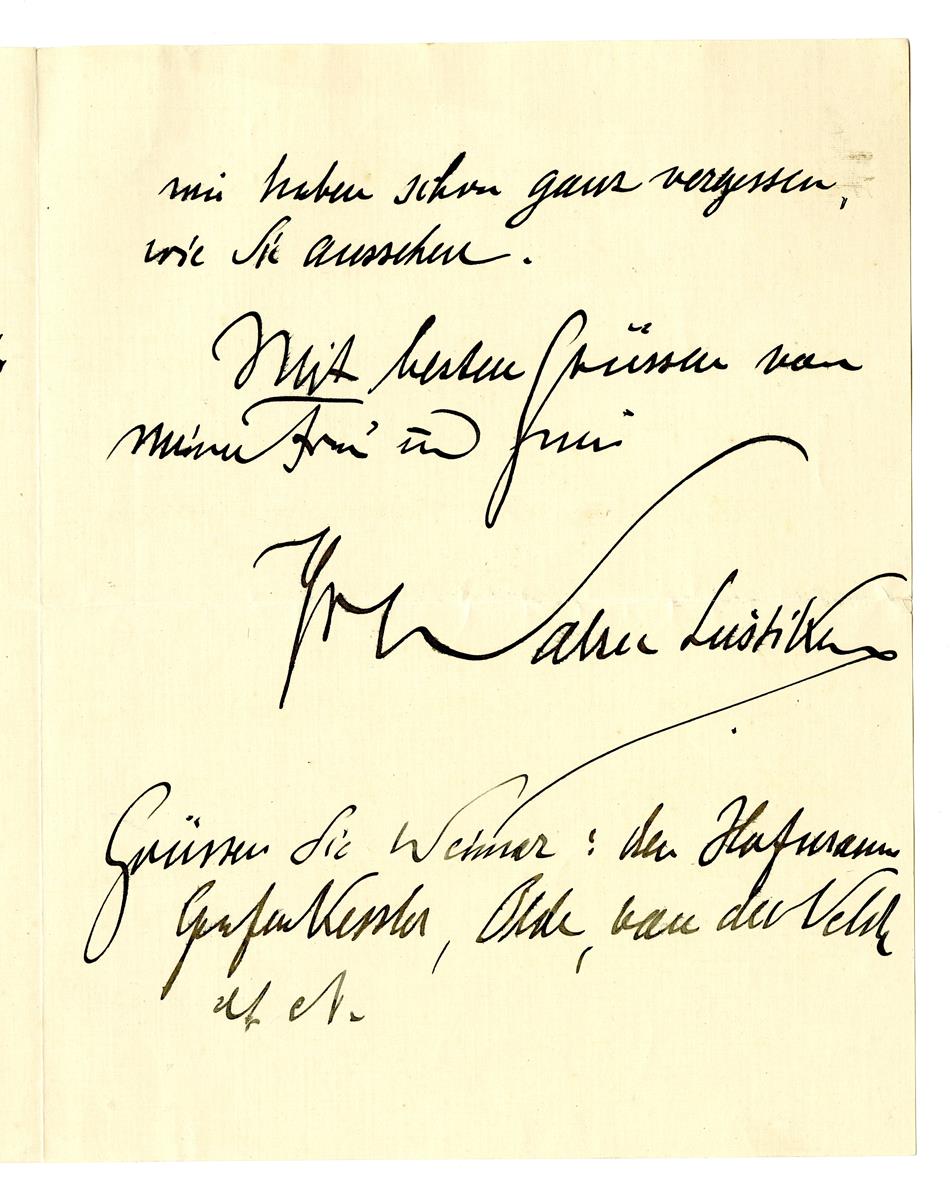 wir haben schon ganz vergessen,
wie Sie aussehen.
Mit besten Grüssen von
meiner Frau und mir
Ihr Walter Leistikow
Grüssen Sie Weimar: den Hofmann
Grafen Kessler, Olde, van de Velde